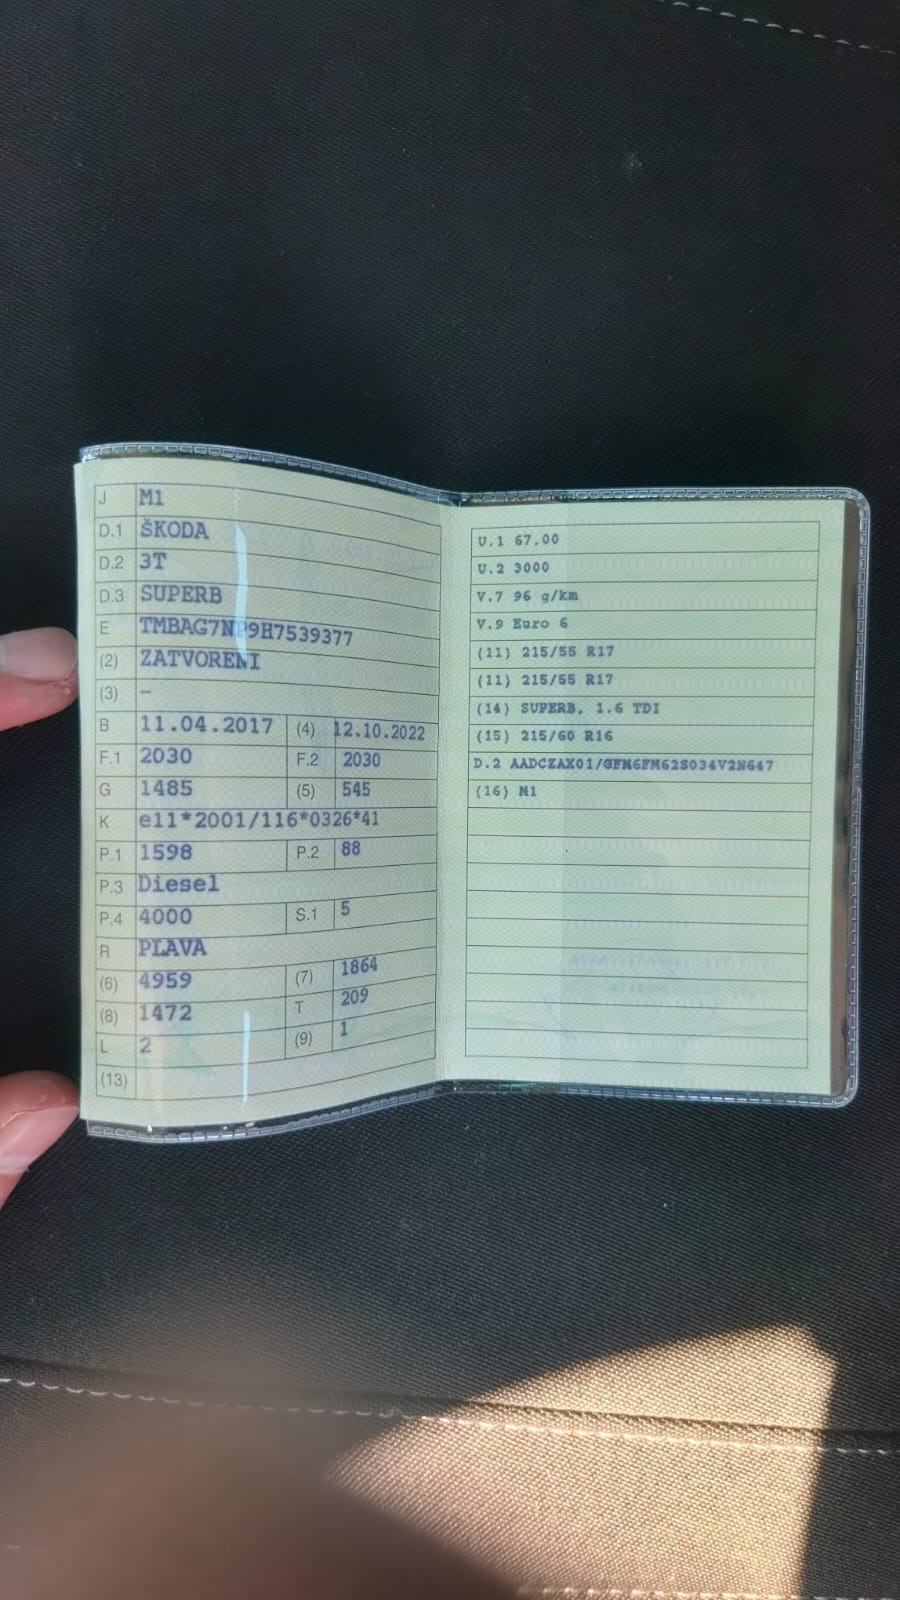 J M1
D.1 ŠKODA
D.2 3T
D.3 SUPERB
E TMBAG7NP9H7539377
(2) ZATVORENI
(3) –
B 11.04.2017 (4) 12.10.2022
F.1 2030 F.2 2030
G 1485 (5) 545
K e11*2001/116*0326*41
P.1 1598 P.2 88
P.3 Diesel
P.4 4000 S.1 5
R PLAVA
(6) 4959 (7) 1864
(8) 1472 T 209
L 2 (9) 1
(13)
U.1 67,00
U.2 3000
V.7 96 g/km
V.9 Euro 6
(11) 215/55 R17
(11) 215/55 R17
(14) SUPERB, 1.6 TDI
(15) 215/60 R16
D.2 AADCZAX01/GFM6FM62S034V2N647
(16) M1